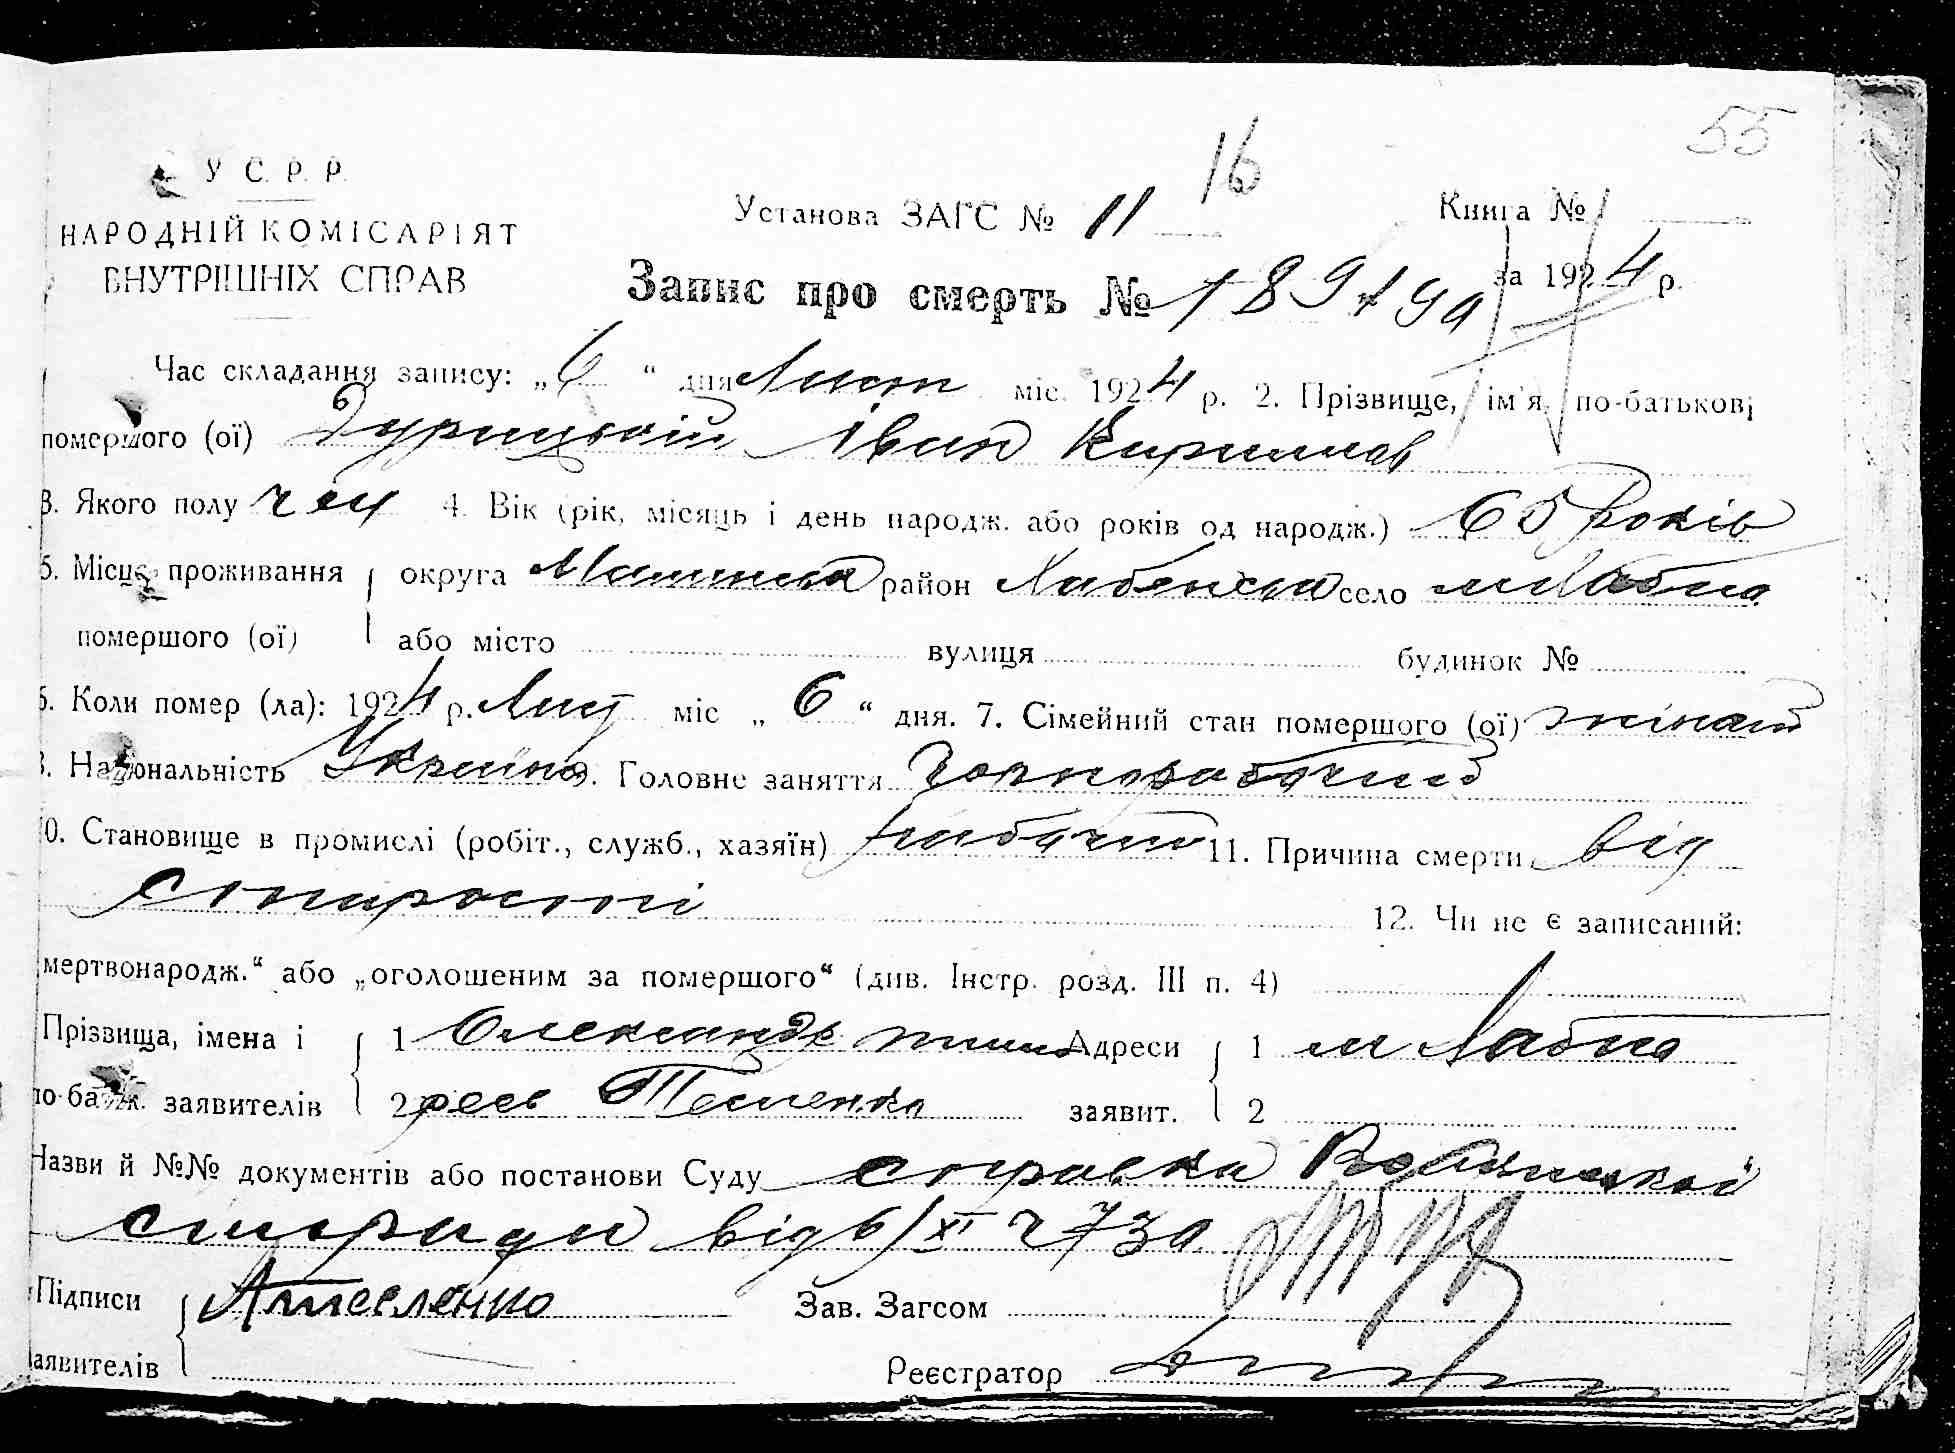 55
У С. Р. Р.
НАРОДНІЙ КОМІСАРІЯТ
ВНУТРІШНІХ СПРАВ
16
Установа ЗАГС № 11
Книга №
Запис про смерть № 189
за 1924 р.
Час складання запису: „6“ дня Лист міс. 1924 р. 2. Прізвище, ім'я, по-батькові
помершого (ої) Іван Кирилов
3. Якого полу чол 4. Вік (рік, місяць і день народж. або років од народж.) 65 Років
5. Місце проживання округа район село м
помершого (ої) або місто вулиця будинок №
6. Коли помер (ла): 1924 р. Лист міс „6“ дня. 7. Сімейний стан помершого (ої) жінат
8. Національність 9. Головне заняття Чорнорабочий
10. Становище в промислі (робіт., служб., хазяїн) рабочий 11. Причина смерти від
старости
12. Чи не є записаний:
мертвонародж.“ або „оголошеним за помершого“ (див. Інстр. розд. III п. 4)
Прізвища, імена і 1 Олександр Адреси 1 м
по-батьк. заявителів 2 заявит. 2
Назви й №№ документів або постанови Суду справка
від 6/XI ч 730
Підписи Зав. Загсом
заявителів
Реєстратор